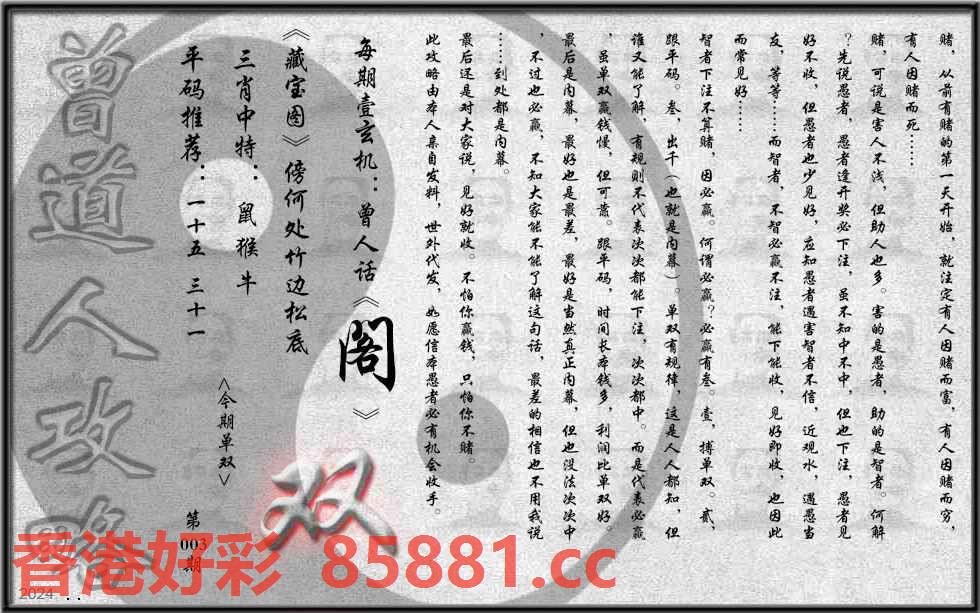 赌，从前有赌的第一天开始，就注定有人因赌而富，有人因赌而穷，
有人因赌而死……
赌，可说是害人不浅，但助人也多。害的是愚者，助的是智者。何解
？先说愚者，愚者逢开奖必下注，虽不知中不中，但也下注，愚者见
好不收，但愚者也少见好，应知愚者遇害智者不信，近观水，遇愚当
友，等等……而智者，不智必赢不注，能下能收，见好即收，也因此
而常见好……
智者下注不算赌，因必赢。何谓必赢？必赢有叁。壹，搏单双。贰，
跟平码。叁，出千（也就是内幕）。单双有规律，这是人人都知，但
谁又能了解，有规则不代表次次都能下注，次次都中。而是代表必赢
，虽单双赢钱慢，但可靠。跟平码，时间长本钱多，利润比单双好。
最后是内幕，最好也是最差，最好是当然真正内幕，但也没法次次中
，不过也必赢，不知大家能不能了解这句话，最差的相信也不用我说
……到处都是内幕。
最后还是对大家说，见好就收。不怕你赢钱，只怕你不赌。
此攻略由本人亲自发料，世外代发，如愿信本愚者必有机会收手。
每期壹玄机：曾人话《閣》
《藏宝图》傍何处竹边松底
三肖中特：鼠猴牛
平码推荐：一十五 三十一
<今期单双>
双
第
003
期
曾道人攻略
香港好彩 85881.cc
2024